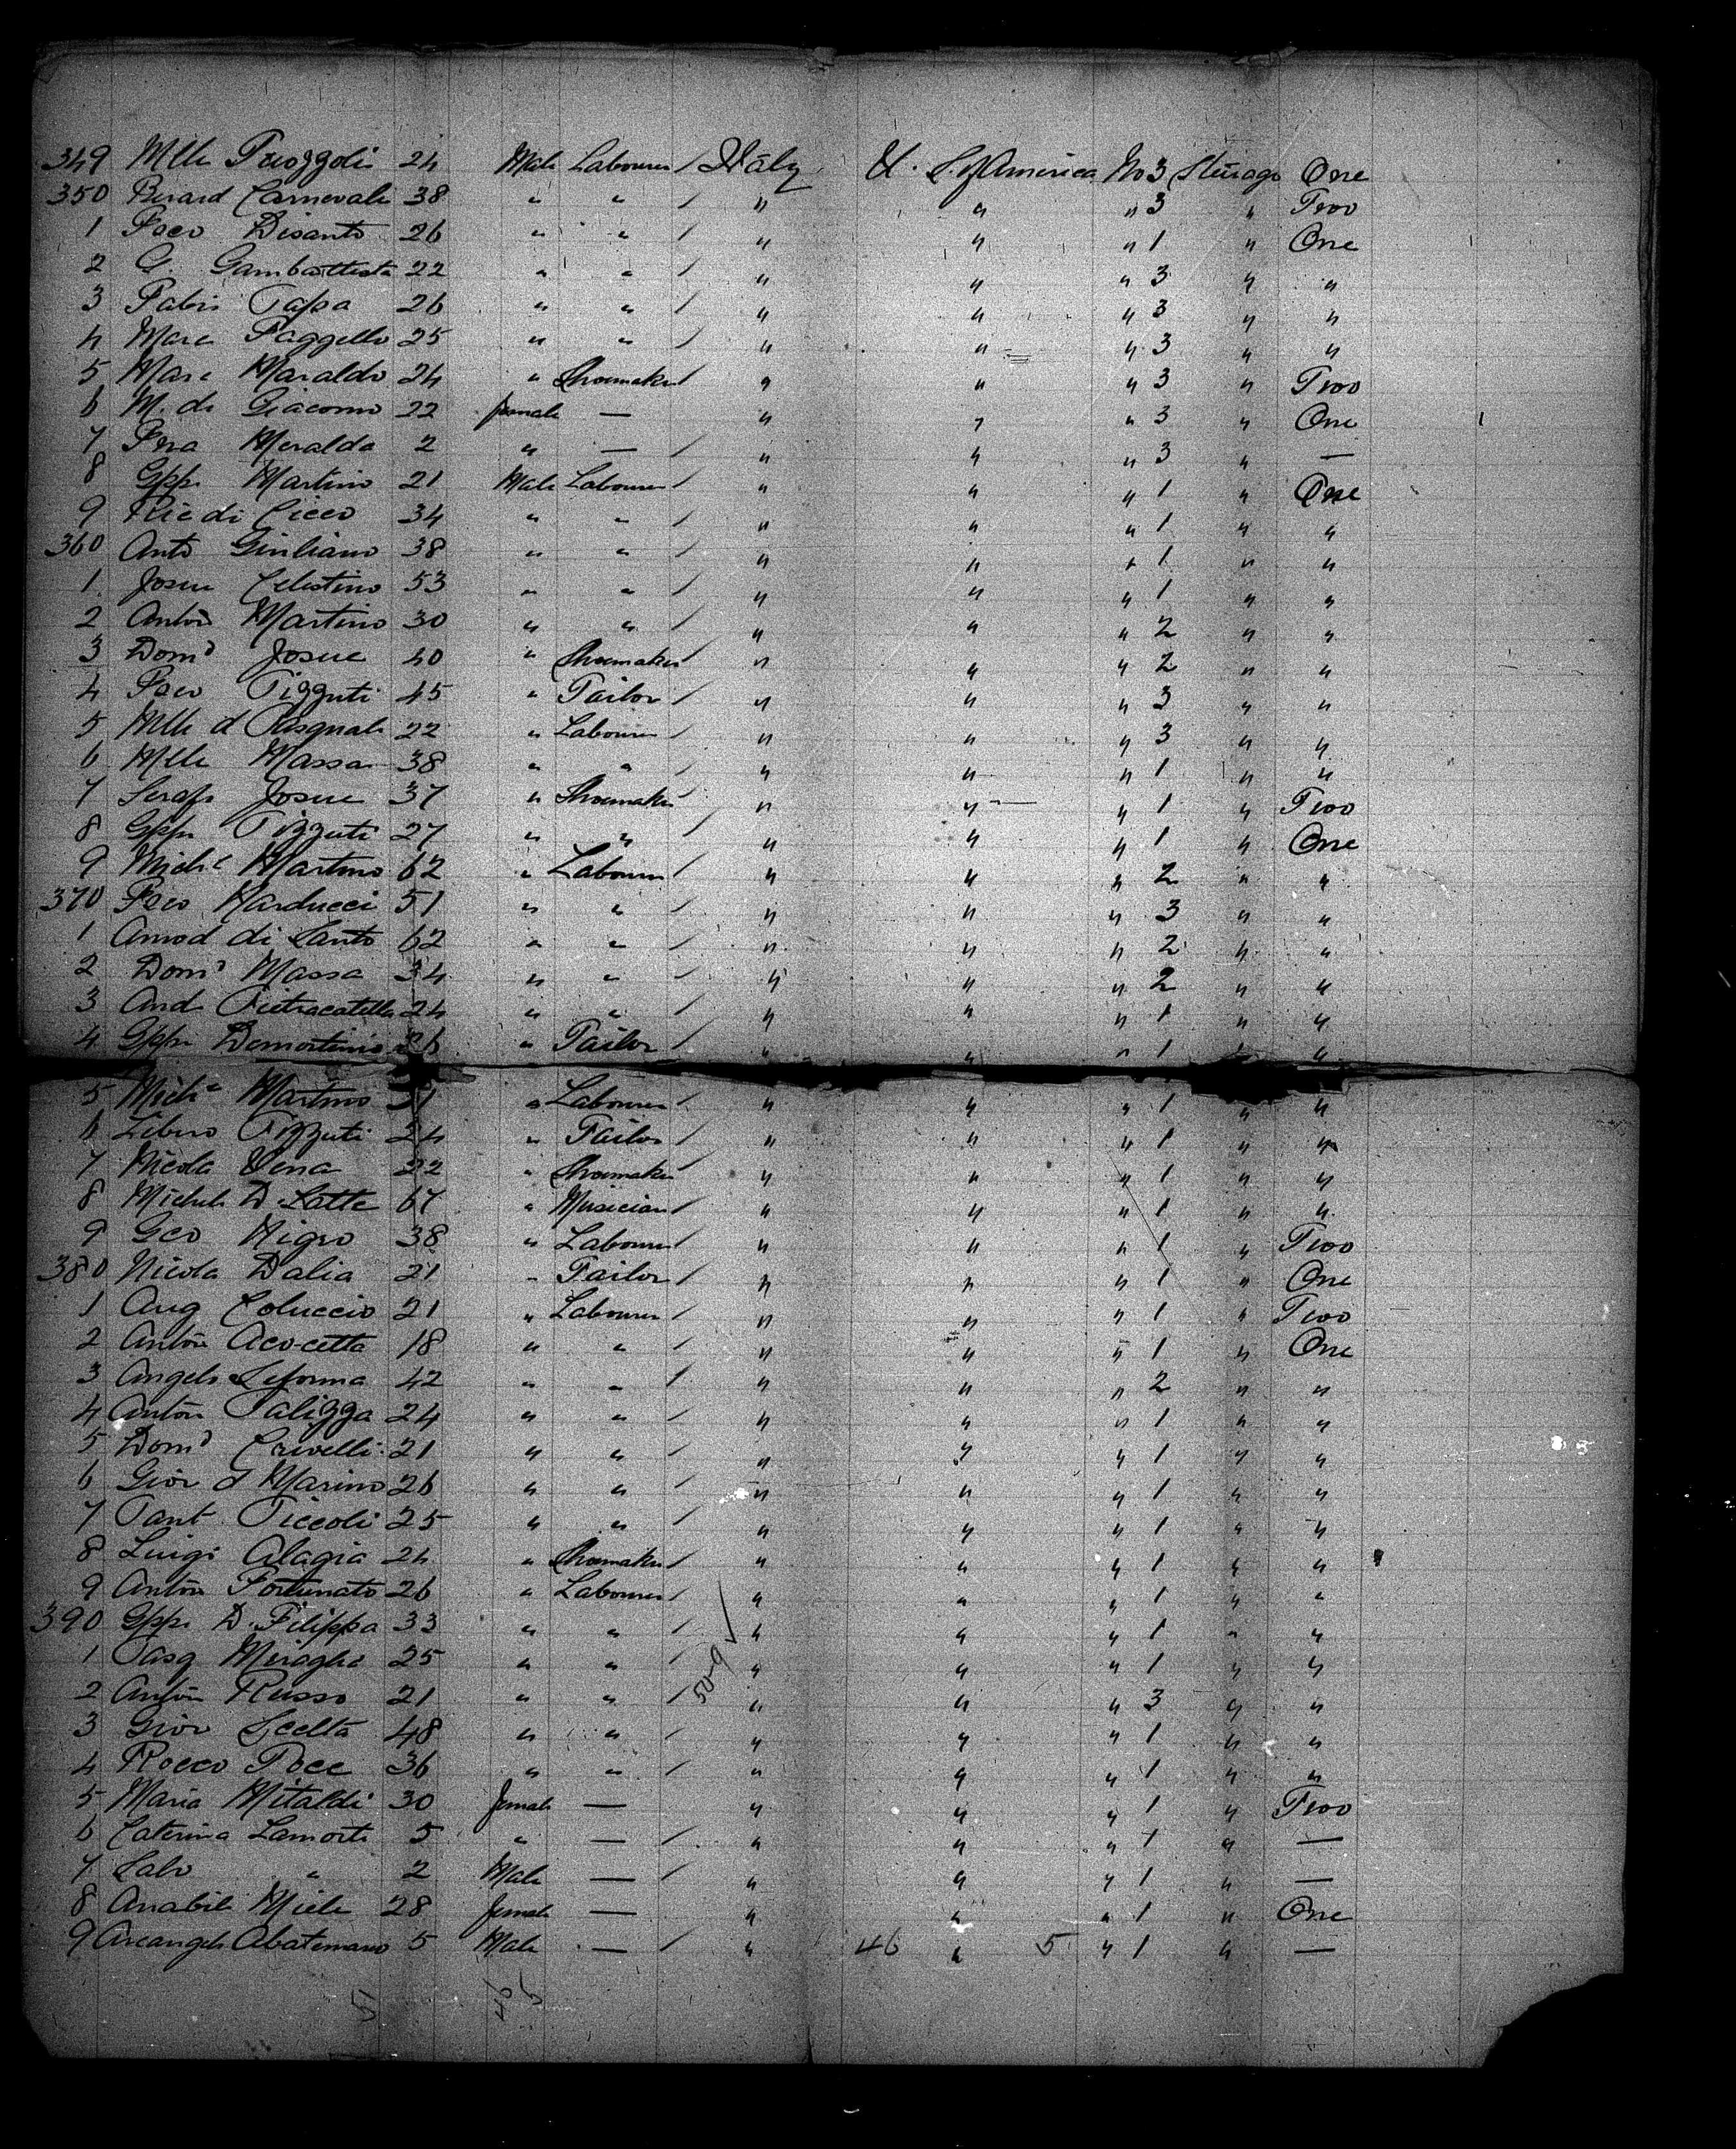 349 Mlle Puozzoli 24 Male Labourer / Italy U. S. of America No 3 Steerage One
350 Berard Carnevale 38 " " / " " " 3 " Two
1 Fsco Disanto 26 " " / " " " 1 " One
2 G. Gambattista 22 " " / " " " 3 " "
3 Fabri Tassa 26 " " / " " " 3 " "
4 Marc Faggello 25 " " / " " " 3 " "
5 Marc Maraldo 24 " Shoemaker / " " " 3 " Two
6 M. di Giacomo 22 female — " " " 3 " One
7 Fna Meralda 2 " — / " " " 3 " —
8 Gppe Martino 21 Male Labourer / " " " 1 " One
9 Nic di Cicco 34 " " / " " " 1 " "
360 Anto Giuliano 38 " " / " " " 1 " "
1 Josue Celestino 53 " " / " " " 1 " "
2 Anton Martino 30 " " / " " " 2 " "
3 Domo Josue 40 " Shoemaker / " " " 2 " "
4 Fsco Pizzuti 45 " Tailor / " " " 3 " "
5 Mlle d Pasquale 22 " Labourer / " " " 3 " "
6 Mlle Massa 38 " " / " " " 1 " "
7 Serafo Josue 37 " Shoemaker " " — " 1 " Two
8 Gppe Pizzuti 27 " " / " " " 1 " One
9 Miche Martino 62 " Labourer / " " " 2 " "
370 Fsco Narducci 51 " " / " " " 3 " "
1 Amod di Santo 62 " " / " " " 2 " "
2 Domo Massa 34 " " / " " " 2 " "
3 And Pietracatella 24 " " / " " " 1 " "
4 Gppe Demartinis 26 " Tailor / " " " 1 " "
5 Miche Martino " Labourer / " " " 1 " "
6 Libero Pizzuti 24 " Tailor / " " " 1 " "
7 Nicola Vena 22 " Shoemaker / " " " 1 " "
8 Michele D. Latte 67 " Musician / " " " 1 " "
9 Geo Nigro 38 " Labourer / " " " 1 " Two
380 Nicola Dalia 21 " Tailor / " " " 1 " One
1 Aug Coluccio 21 " Labourer / " " " 1 " Two
2 Anton Acocetta 18 " " / " " " 1 " One
3 Angelo Leforma 42 " " / " " " 2 " "
4 Anton Palizza 24 " " / " " " 1 " "
5 Domo Crivelli 21 " " / " " " 1 " "
6 Giov d Marino 26 " " / " " " 1 " "
7 Pant Piccoli 25 " " / " " " 1 " "
8 Luigi Alagia 24 " Shoemaker / " " " 1 " "
9 Anton Fortunato 26 " Labourer / " " " 1 " "
390 Gppe D. Filippa 33 " " / " " " 1 " "
1 Pasq Miraglia 25 " " / " " " 1 " "
2 Anton Russo 21 " " / " " " 3 " "
3 Giov Scelta 48 " " / " " " 1 " "
4 Rocco Poce 36 " " / " " " 1 " "
5 Maria Mitaldi 30 female — " " " 1 " Two
6 Caterina Lamorte 5 " — / " " " 1 " —
7 Salv " 2 Male — / " " " 1 " —
8 Anabile Miele 28 female — " " " 1 " One
9 Arcangelo Abatemano 5 Male — / " 46 " 5 " 1 " —
51 46 5